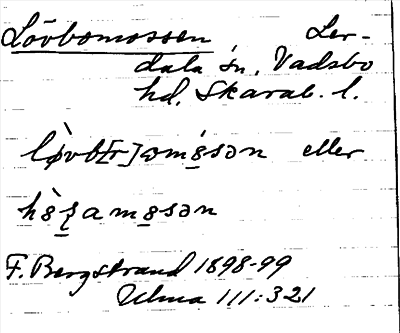 Lövbomossen Ler-
dala sn, Vadsbo
hd, Skarab. l.
lø̀vb[r]ɷmǿ̱sən eller
F. Bergstrand 1898-99
Ulma 111:321